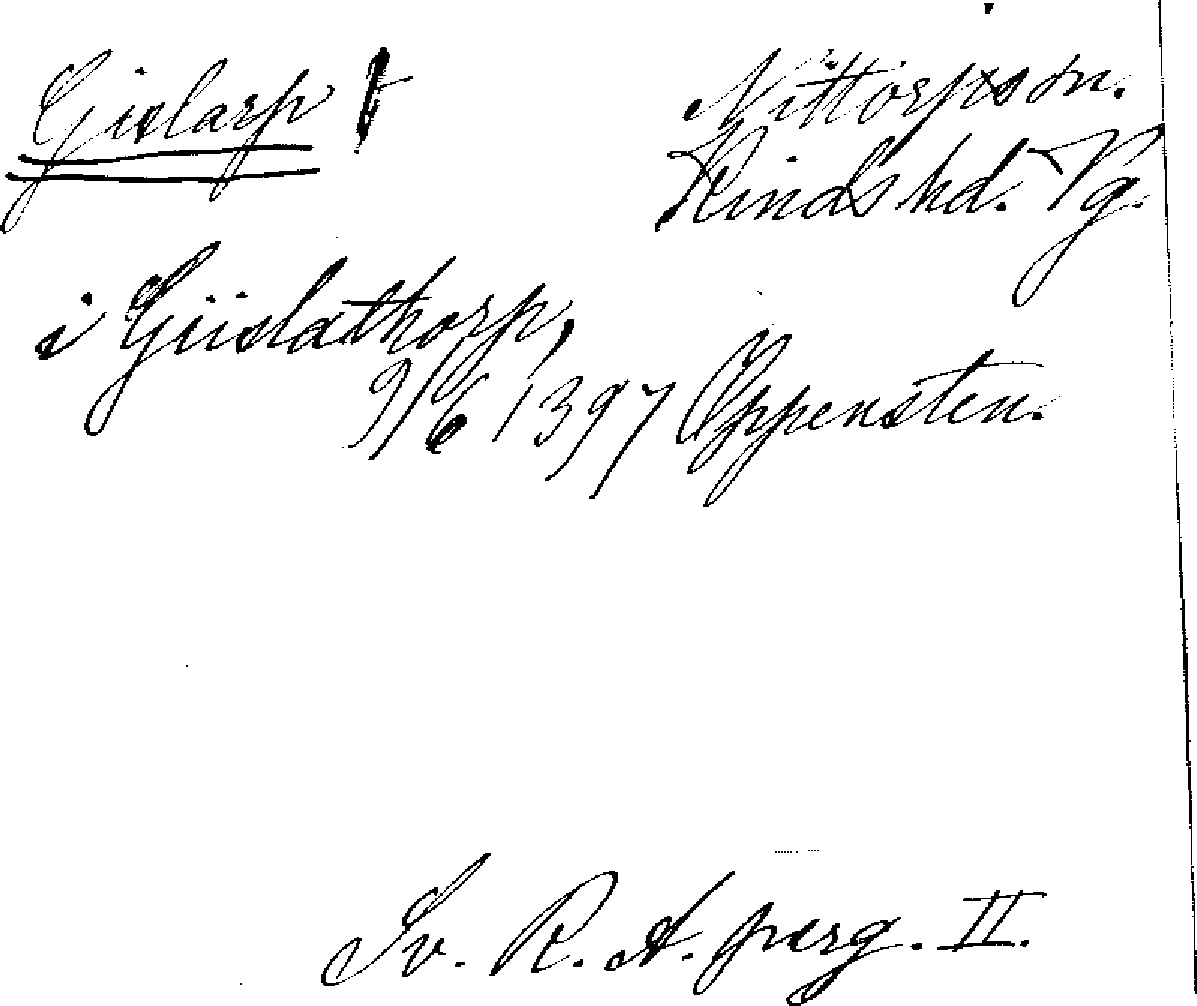 Gislarp † Nittorps sn.
Kinds hd. Vg.
i Giislathorp,
9/6 1397 Oppensten.
Sv. R. A. perg. II.